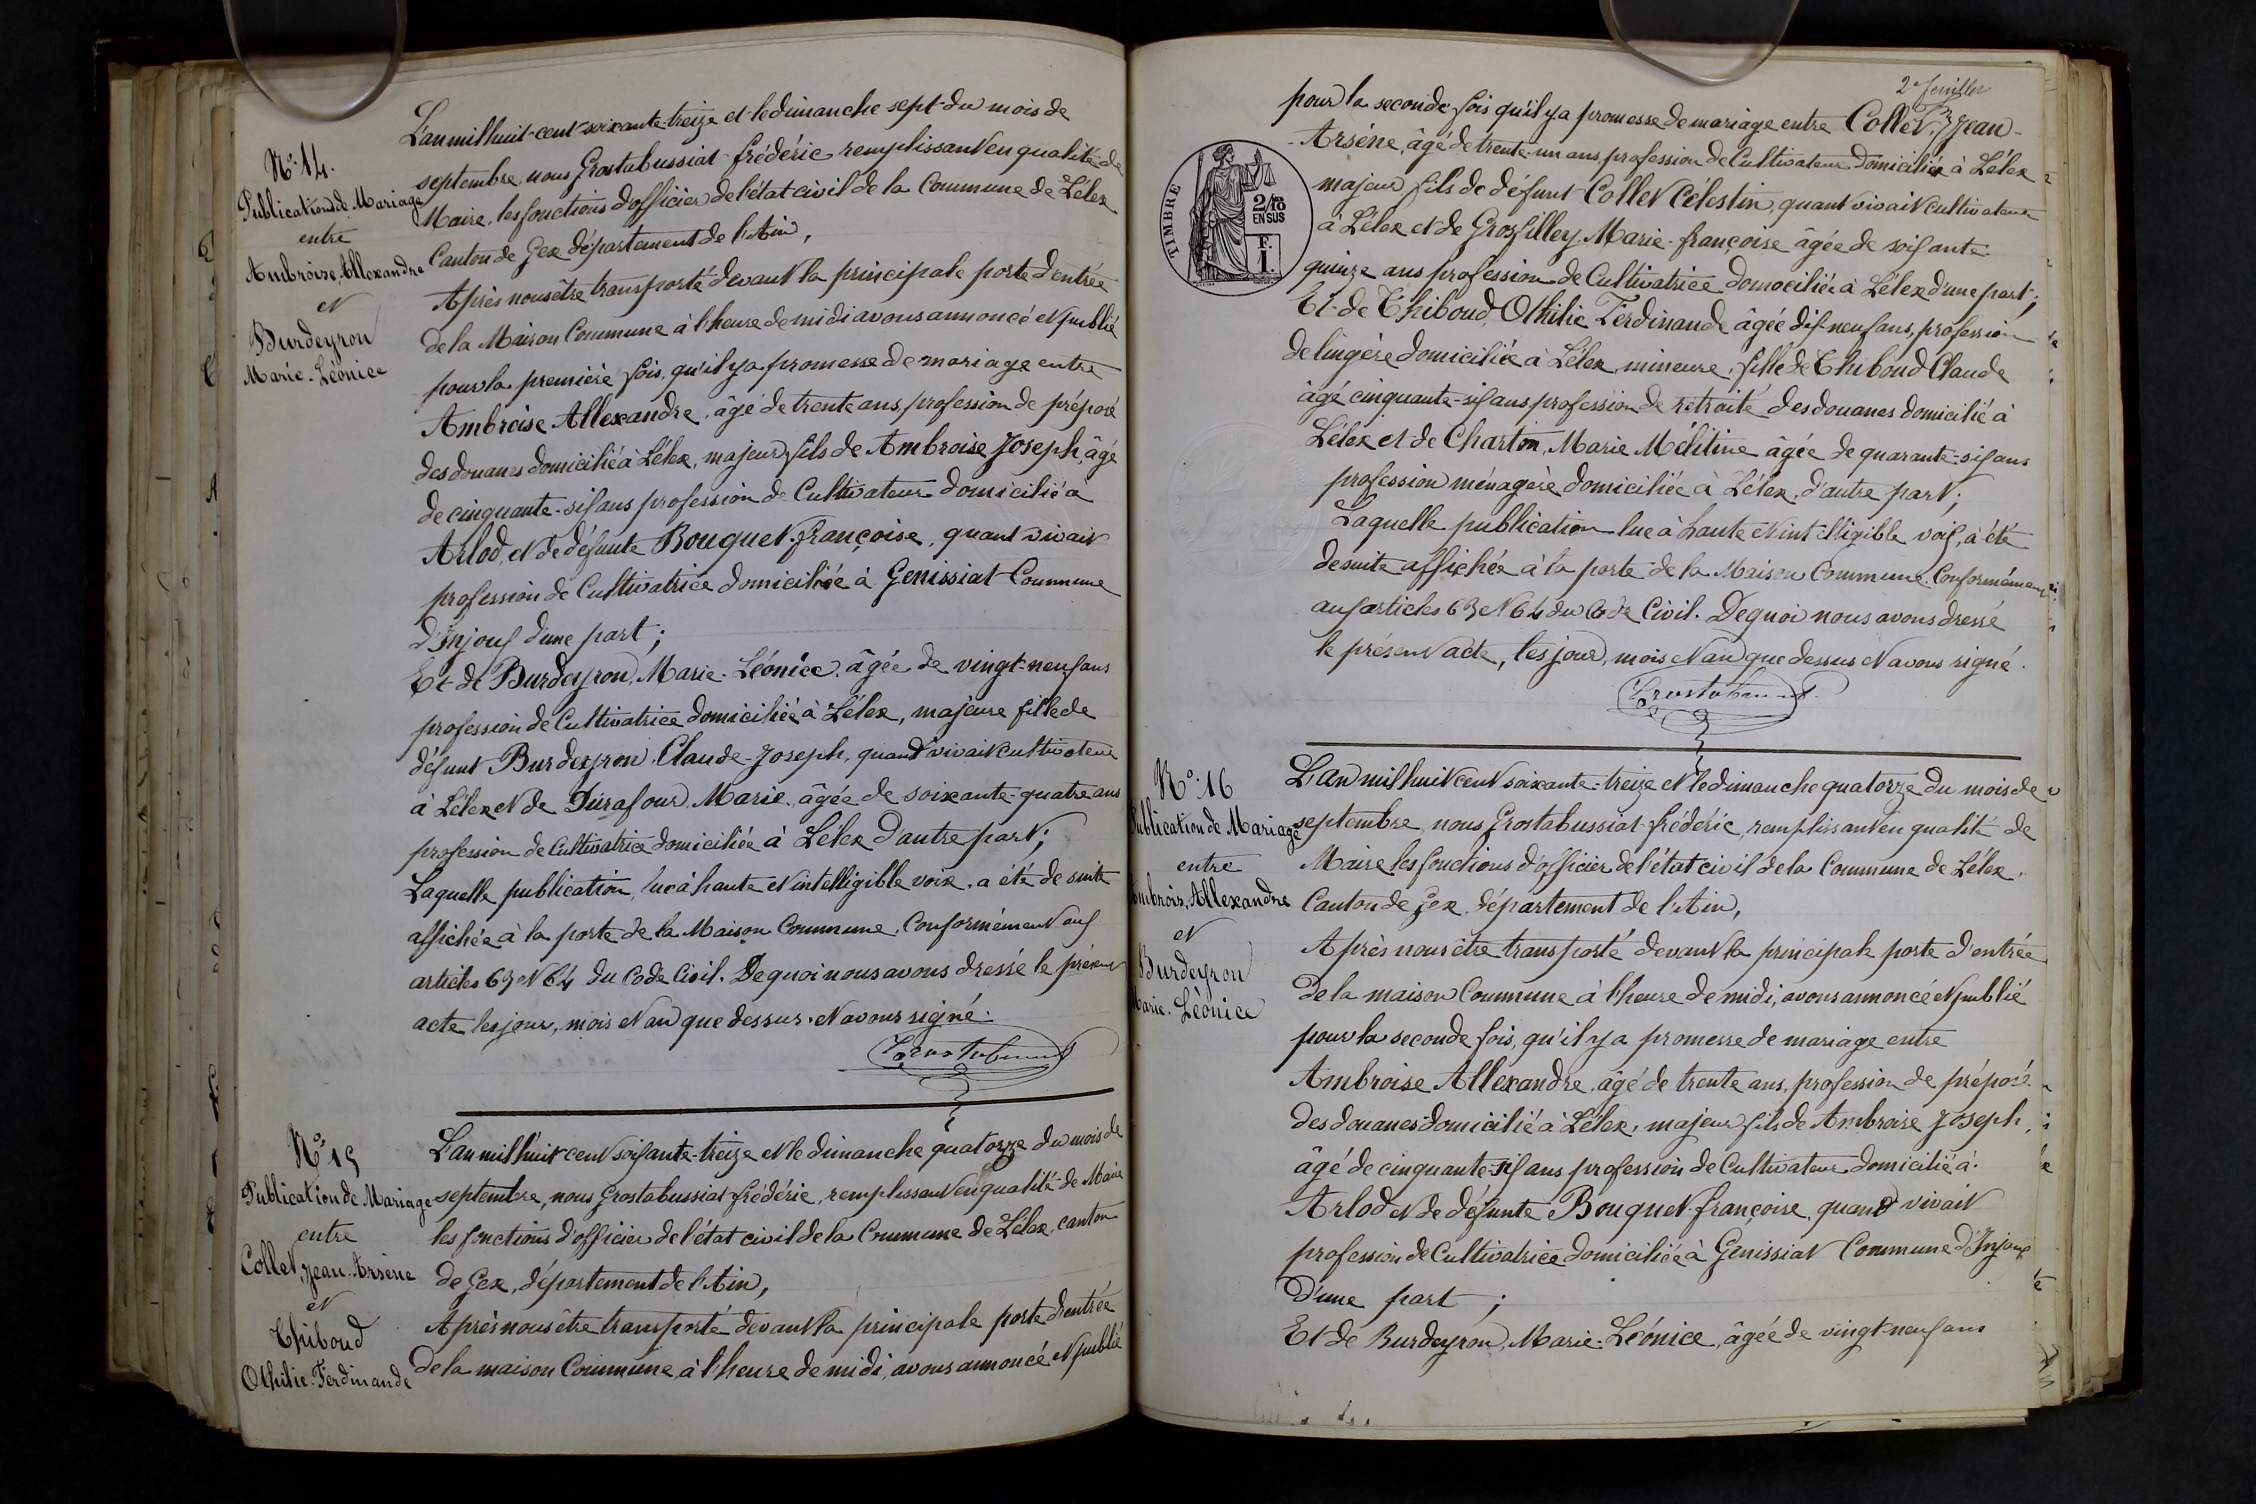 L'an mil huit-cent soixante-treize et le dimanche sept du mois de
N.° 14.
septembre, nous Grostabussiat frédéric remplissant en qualité de
Publication de Mariage
Maire, les fonctions d'officier de l'état civil de la Commune de Lélex
entre
Canton de Gex département de l'Ain,
Ambroise, Allexandre
et
Burdeyron
Marie-Léonice
Après nous être transporté devant la principale porte d'entrée
de la Maison Commune à l'heure de midi avons annoncé et publié
pour la première fois, qu'il y a promesse de mariage entre
Ambroise Allexandre, âgé de trente ans, profession de préposé
des douanes domicilié à Lélex, majeur, fils de Ambroise Joseph, âgé
de cinquante-six ans profession de Cultivateur domicilié à
Arlod, et de défunte Bouquet françoise, quant vivait
profession de Cultivatrice domiciliée à Genissiat Commune
d'Injoux d'une part;
Et de Burdeyron, Marie-Léonice, âgée de vingt-neuf ans
profession de Cultivatrice domiciliée à Lélex, majeure fille de
défunt Burdeyron, Claude-Joseph, quand vivait cultivateur
à Lélex et de Durafour Marie, âgée de soixante-quatre ans
profession de Cultivatrice domiciliée à Lélex d'autre part;
Laquelle publication, lue à haute et intelligible voix, a été de suite
affichée à la porte de la Maison Commune, Conformément aux
articles 63 et 64 du Code Civil. De quoi nous avons dressé le présent
acte les jour, mois et an que dessus et avons signé.
N.° 15
Publication de Mariage
entre
Collet, Jean-Arsène
et
Thiboud
Othilie-Ferdinande
L'an mil huit cent soixante-treize et le dimanche quatorze du mois de
septembre, nous Grostabussiat frédéric, remplissant en qualité de Maire
les fonctions d'officier de l'état civil de la Commune de Lélex, canton
de Gex, département de l'Ain,
Après nous être transporté devant la principale porte d'entrée
de la maison Commune, à l'heure de midi, avons annoncé et publié
2e feuillet
pour la seconde fois qu'il y a promesse de mariage entre Collet, Jean-
Arsène, âgé de trente-un ans, profession de Cultivateur domicilié à Lélex
majeur fils de défunt Collet Célestin, quant vivait cultivateur
à Lélex et de Grosfilley Marie-françoise âgée de soixante
quinze ans profession de Cultivatrice domociliée à Lélex d'une part;
TIMBRE
2/10
EN SUS
F.
I.
Et de Thiboud, Othilie Ferdinande âgée dix-neuf ans, profession
de lingère domiciliée à Lélex, mineure, fille de Thiboud Claude
âgé cinquante-six ans profession de retraité des douanes domicilié à
Lélex et de Charton, Marie Mélitine âgée de quarante-six ans
profession ménagère domiciliée à Lélex, d'autre part;
Laquelle publication lue à haute et intelligible voix, à été
de suite affichée à la porte de la Maison Commune, Conformément
aux articles 63 et 64 du Code Civil. De quoi nous avons dressé
le présent acte, les jour, mois et an que dessus et avons signé.
N.° 16
Publication de Mariage
entre
Ambrois, Allexandre
et
Burdeyron
Marie-Léonice
L'an mil huit cent soixante-treize et le dimanche quatorze du mois de
septembre, nous Grostabussiat frédéric, remplissant en qualité de
Maire les fonctions d'officier de l'état civil de la Commune de Lélex,
Canton de Gex, département de l'Ain,
Après nous être transporté devant la principale porte d'entrée
de la maison Commune à l'heure de midi, avons annoncé et publié
pour la seconde fois, qu'il y a promesse de mariage entre
Ambroise Allexandre, âgé de trente ans, profession de préposé
des douanes domicilié à Lélex, majeur fils de Ambroise Joseph,
âgé de cinquante-six ans profession de Cultivateur domicilié à
Arlod et de défunte Bouquet françoise, quand vivait
profession de Cultivatrice domiciliée à Genissiat Commune d'Injoux
d'une part;
Et de Burdeyron, Marie-Léonice, âgée de vingt-neuf ans